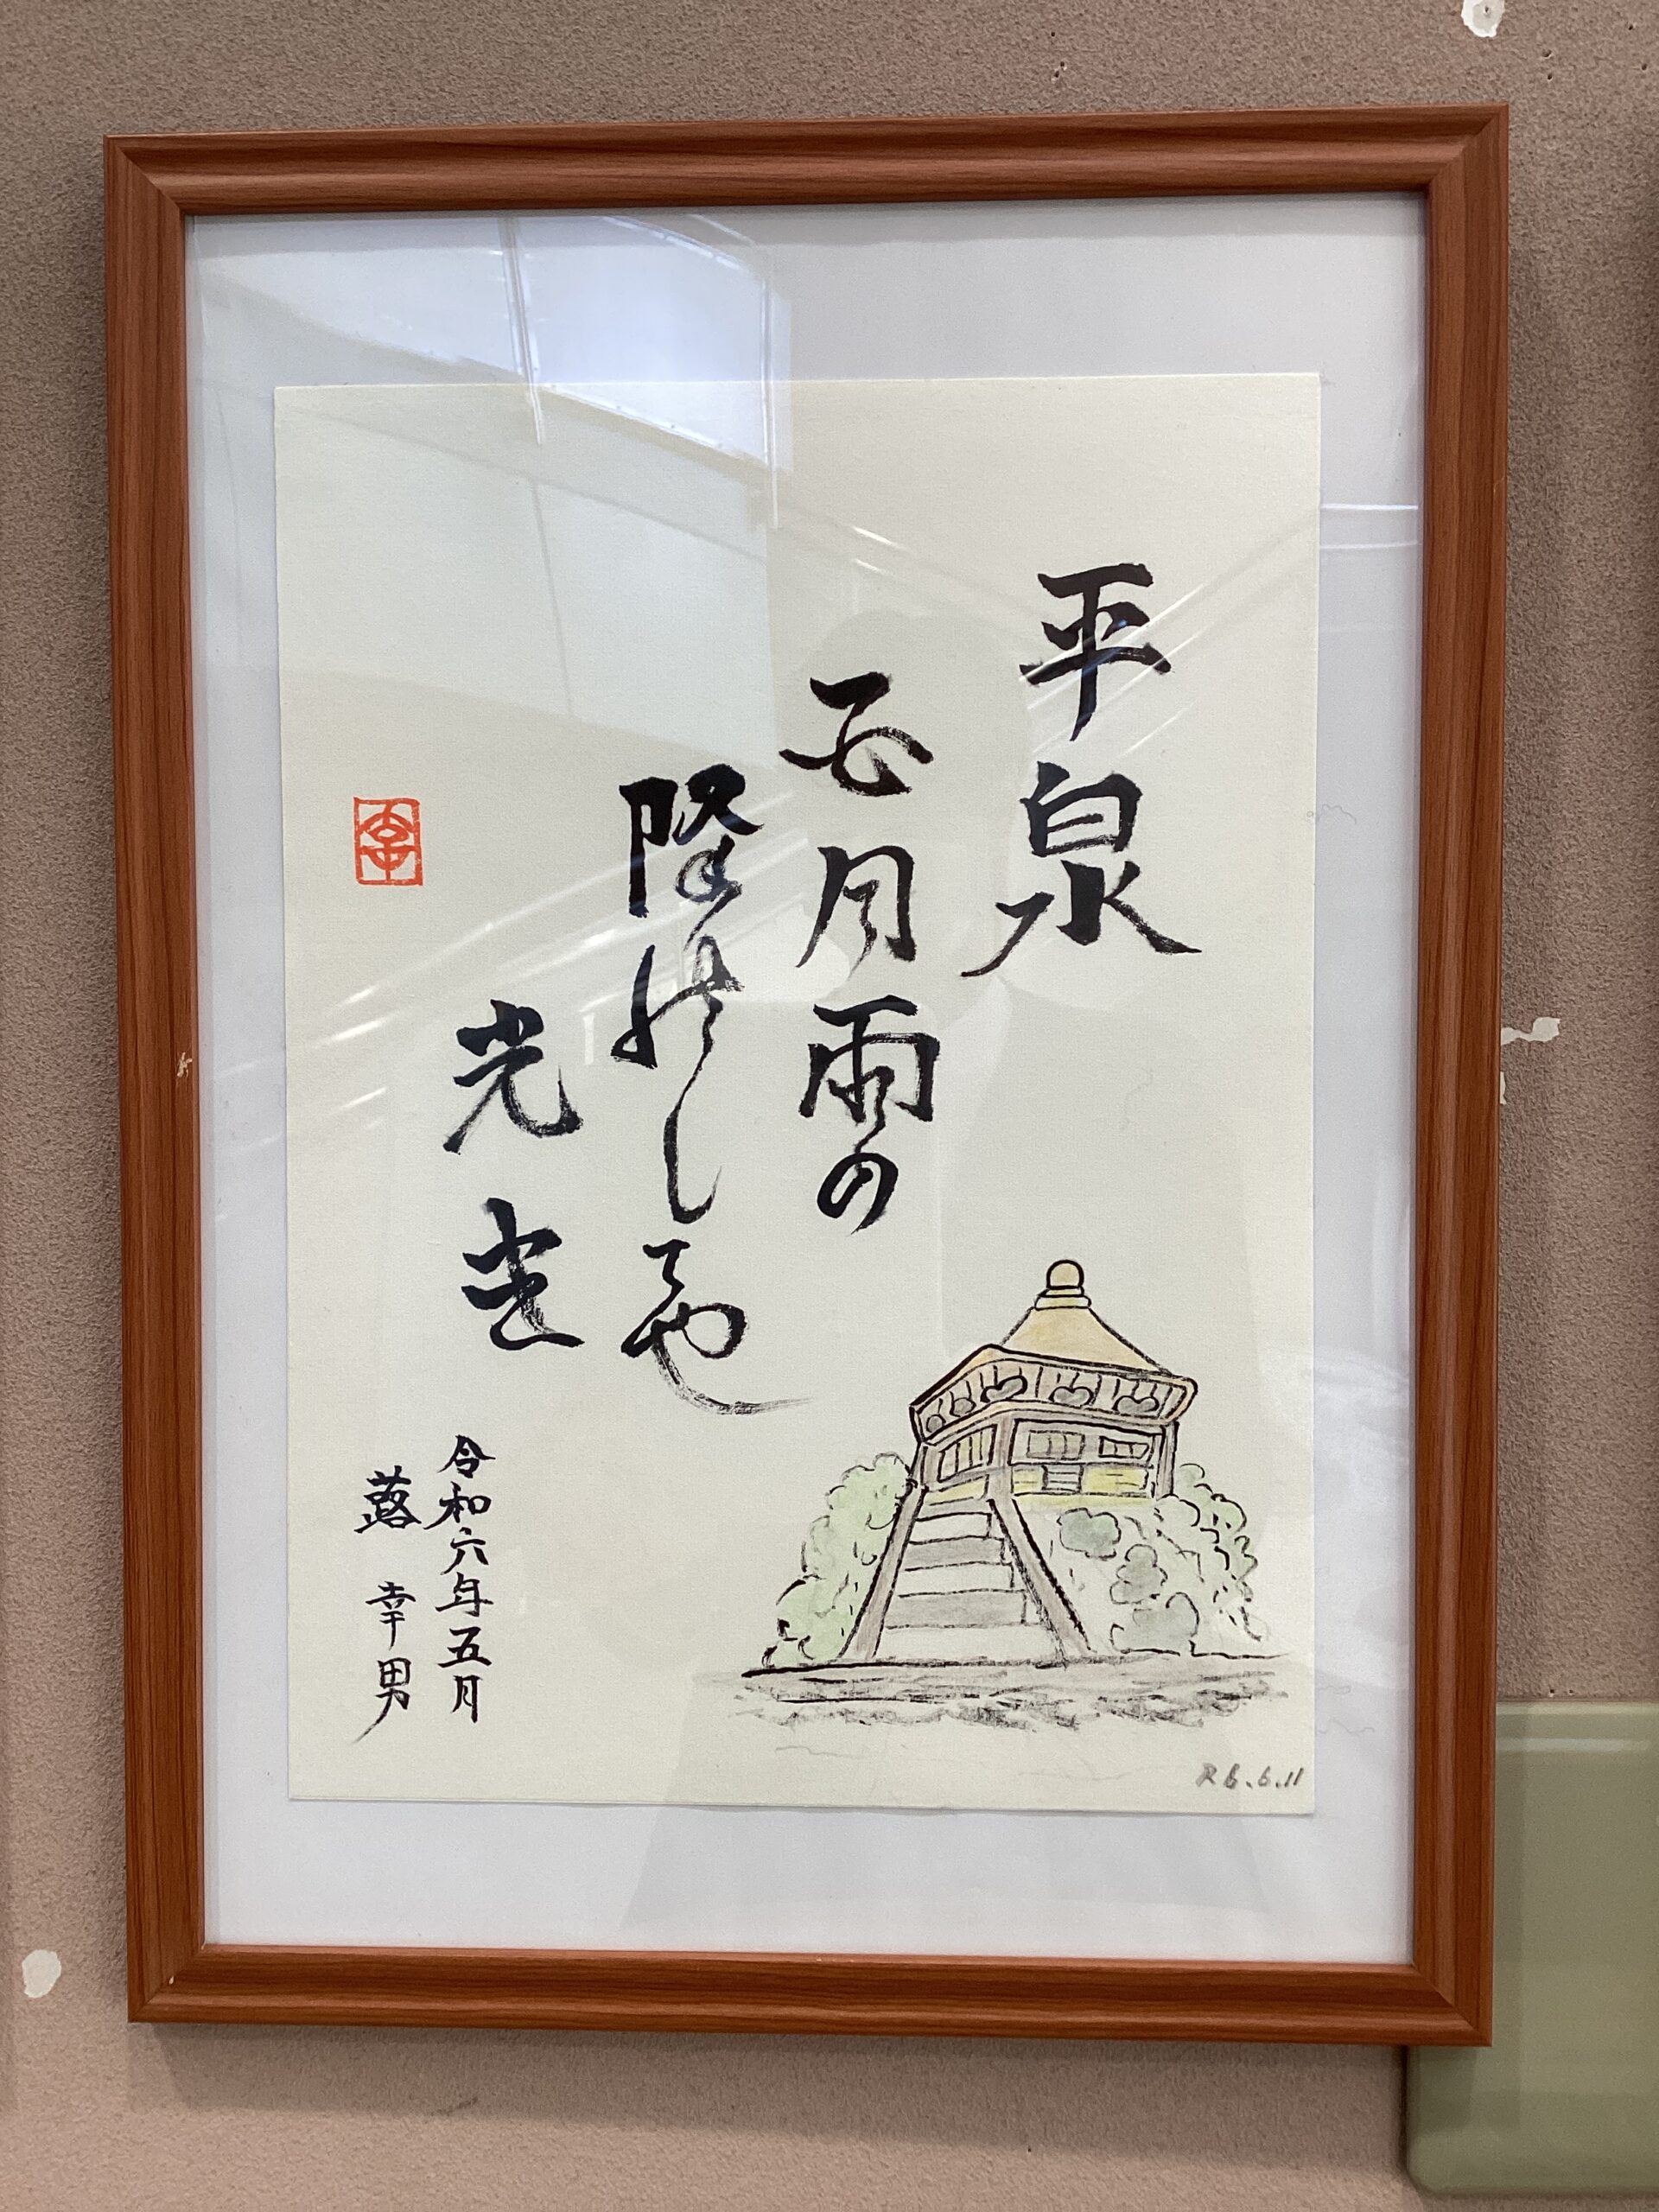 平泉
五月雨の
降残してや
光堂
令和六年五月
蕗 幸男
幸
R6.6.11